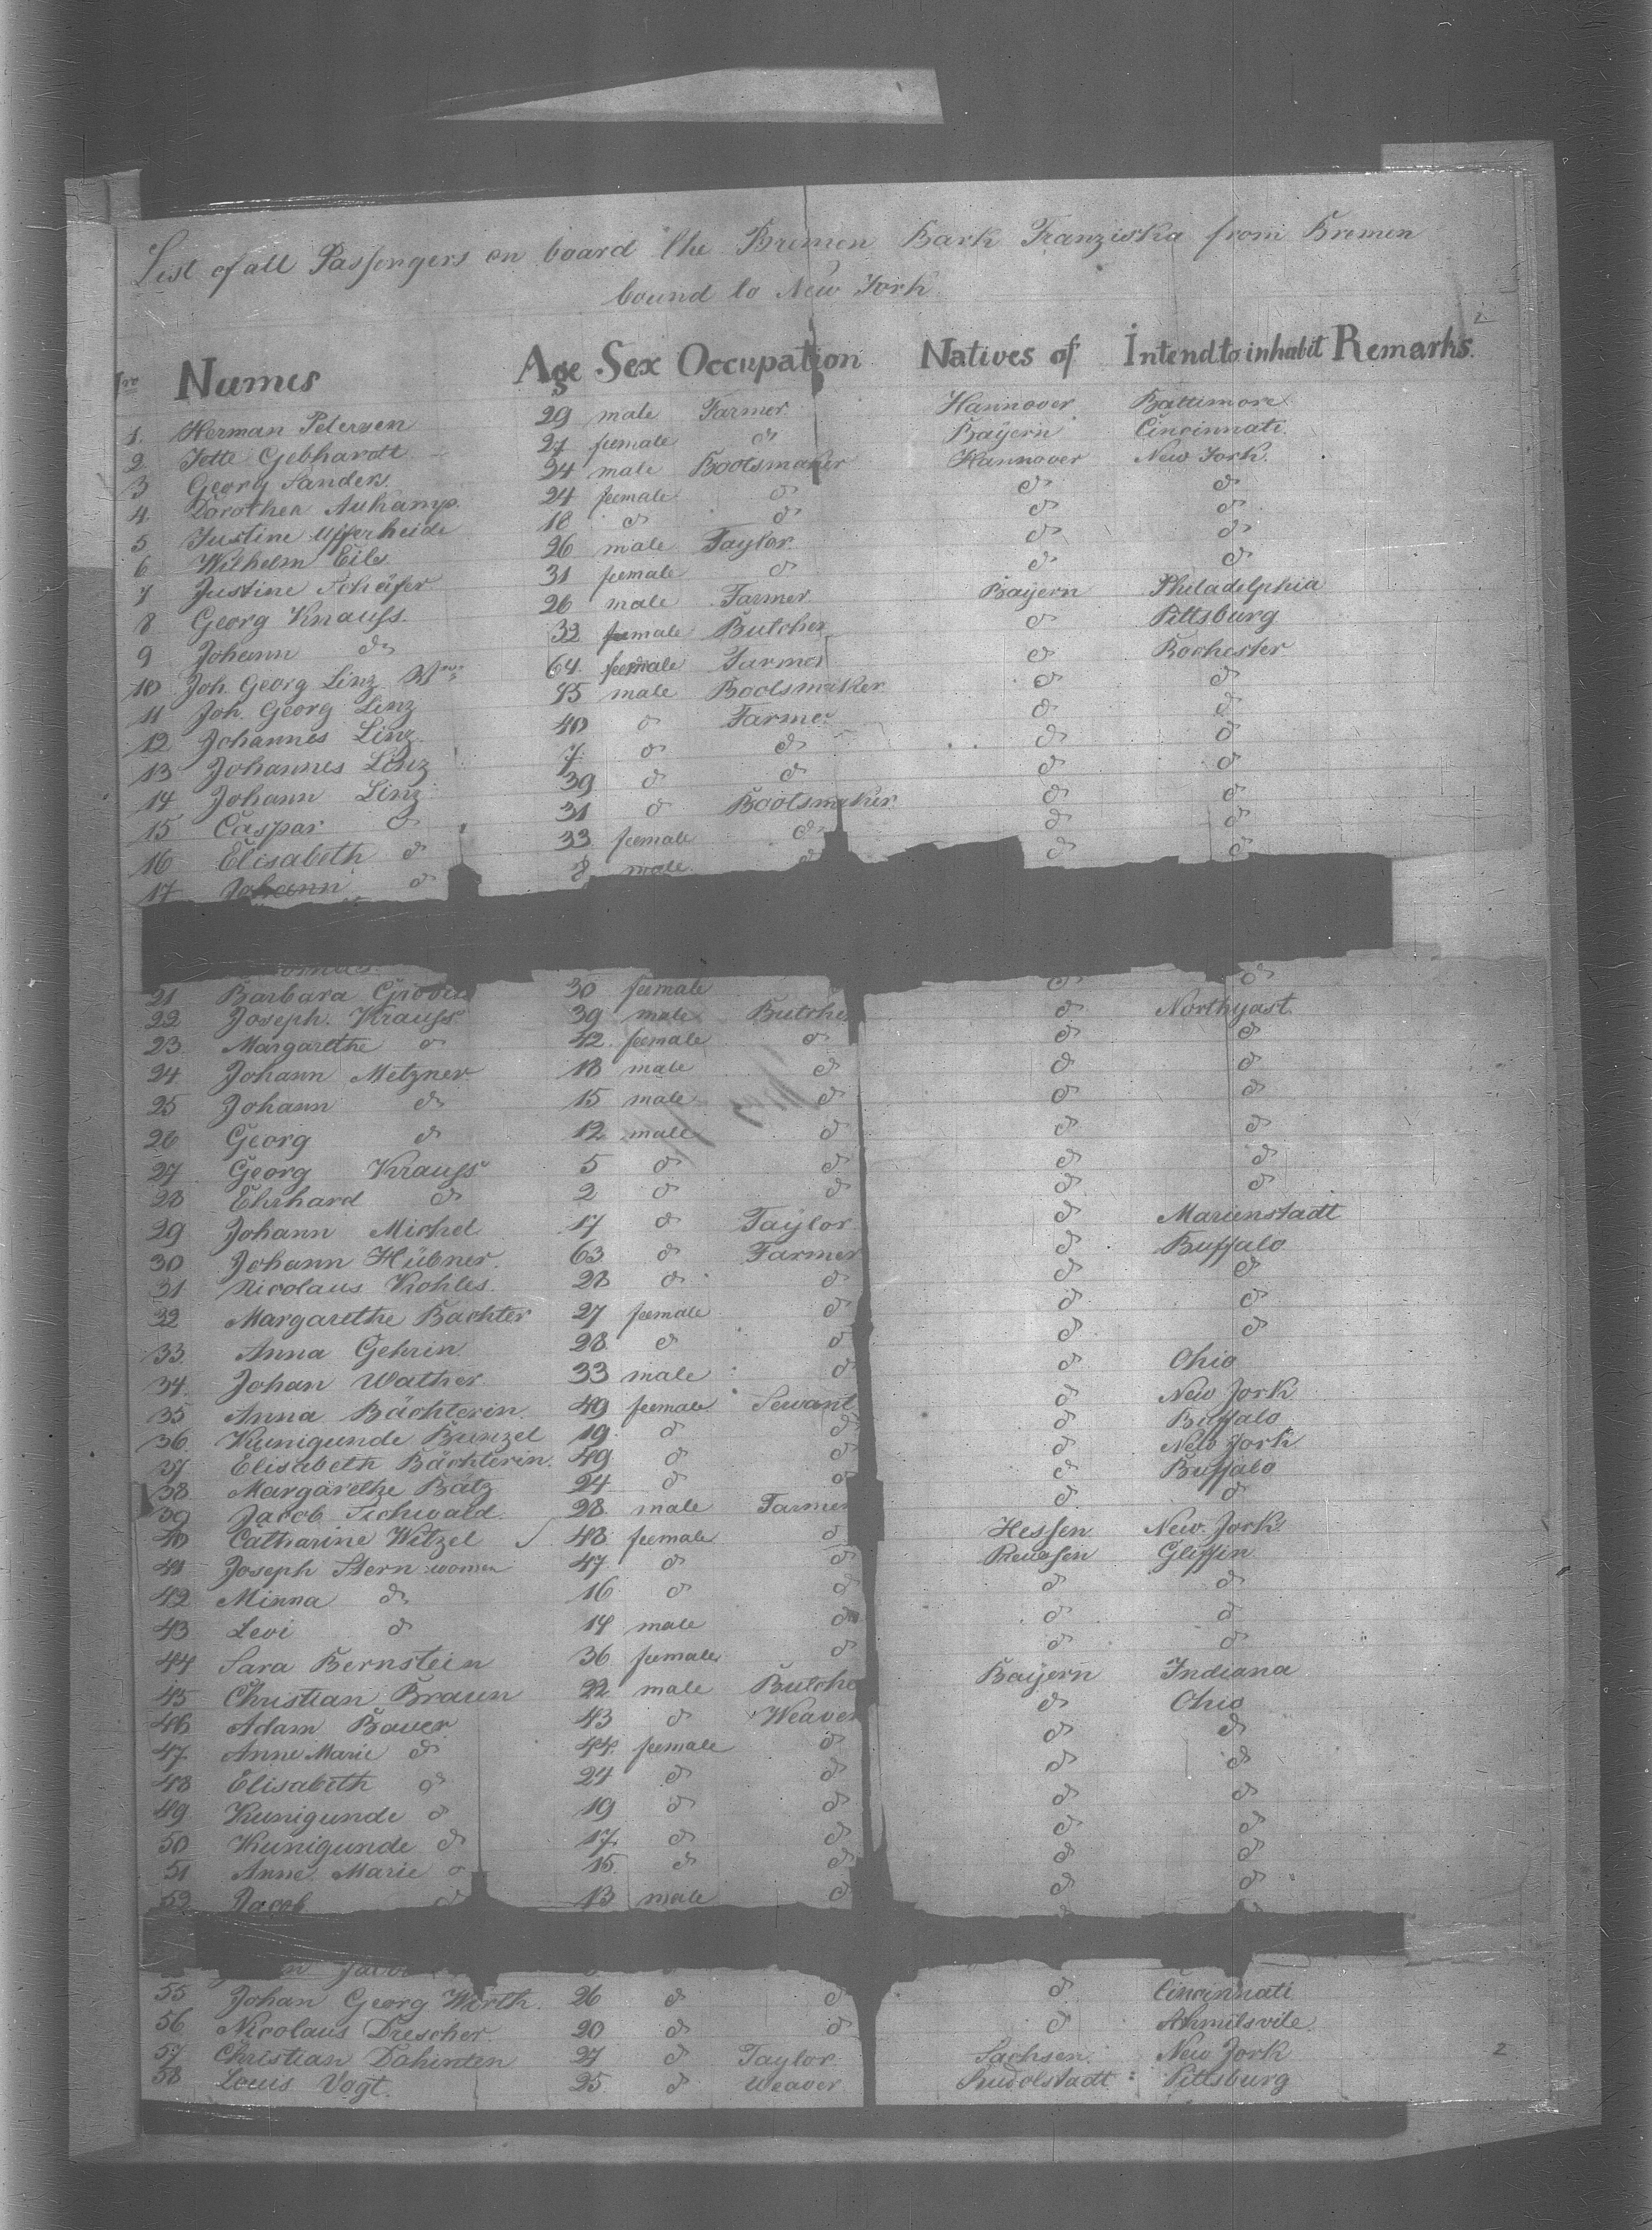 List of all Passengers on board the Bremen Bark Franziska from Bremen
bound to New York.
Nro Names Age Sex Occupation Natives of Intend to inhabit Remarks.
1. Herman Petersen 29 male Farmer Hannover Baltimore
2. Jette Gebhardt 27 feemale do Bayern Cincinnati
3 Georg Sanders 24 male Bootsmaker Hannover New York.
4. Dorothea Aukamp. 24 feemale do do do
5 Justine Ufferheide 18 do do do do
6 Wilhelm Eils 26 male Taylor do do
7 Justine Schäfer 31 feemale do do do
8 Georg Knauss. 26 male Farmer Bayern Philadelphia
9 Johann do 32 feemale Butcher do Pittsburg
10 Joh. Georg Linz 64 feemale Farmer do Rochester
11 Joh. Georg Linz 45 male Bootsmaker do do
12 Johannes Linz 40 do Farmer do do
13 Johannes Linz 7 do do do do
14 Johann Linz 39 do do do do
15 Caspar do 31 do Bootsmaker do do
16 Elisabeth do 33 feemale do do do
17 Johann do 8 male do do do
21 Barbara 30 feemale do do
22 Joseph Krauss 39 male Butche do Northyast
23 Margarethe do 42 feemale do do do
24 Johann Metzner 18 male do do do
25 Johann do 15 male do do do
26 Georg do 12 male do do do
27 Georg Krauss 5 do do do do
28 Ehrhard do 2 do do do do
29 Johann Michel 17 do Taylor do Marienstadt
30 Johann Hübner 63 do Farmer do Buffalo
31 Nicolaus Kohles 28 do do do do
32 Margarethe Bachter 27 feemale do do do
33 Anna Gehrin 28 do do do do
34 Johan Wather 33 male do do Ohio
35 Anna Bächterin 49 feemale Sewant do New York
36 Kunigunde Bunzel 19 do do do Buffalo
37 Elisabeth Bächterin. 49 do do do New York
38 Margarethe Bätz 24 do do do Buffalo
39 Jacob Sichwald 28 male Farmer do do
40 Catharine Witzel 48 feemale do Hessen New York
41 Joseph Stern women 47 do do Preussen Gliffin
42 Minna do 16 do do do do
43 Levi do 14 male do do do
44 Sara Bernstein 36 feemale do do do
45 Christian Braun 22 male Butche Bayern Indiana
46 Adam Bauer 43 do Weaver do Ohio
47 Anne Marie do 44 feemale do do do
48 Elisabeth do 24 do do do do
49 Kunigunde do 19 do do do do
50 Kunigunde do 17 do do do do
51 Anne Marie do 15 do do do do
52 Jacob do 13 male do do do
55 Johan Georg Wirth. 26 do do do Cincinnati
56 Nicolaus Drescher 20 do do do Ahmilsvile
57 Christian Dahinten 27 do Taylor Sachsen New York
58 Louis Vogt. 25 do Weaver Rudolstadt Pittsburg